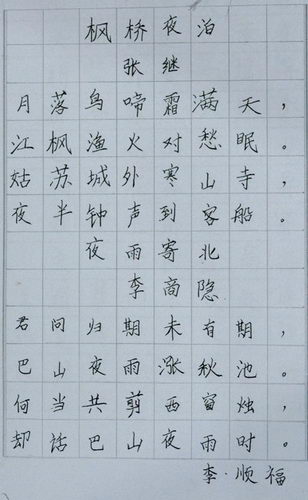 枫桥夜泊
张继
月落乌啼霜满天，
江枫渔火对愁眠。
姑苏城外寒山寺，
夜半钟声到客船。
夜雨寄北
李商隐
君问归期未有期，
巴山夜雨涨秋池。
何当共剪西窗烛，
却话巴山夜雨时。
李·顺福